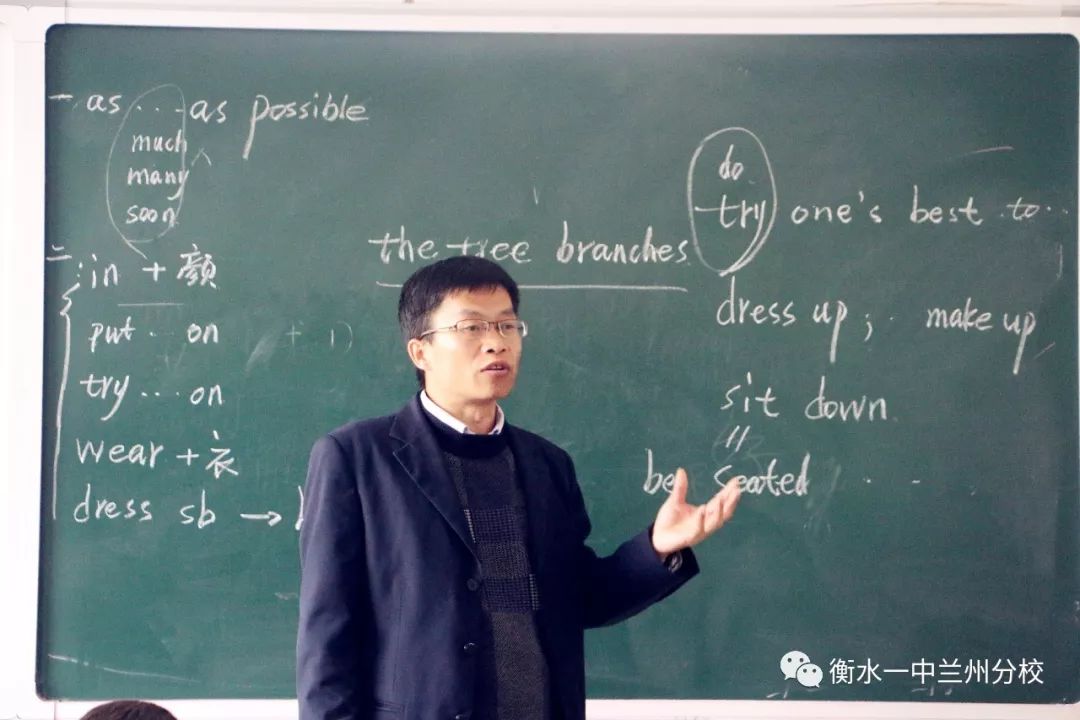 一.as...as possible
much
many
soon
二:in + 颜
put...on
+ 1)
try...on
wear + 衣
dress sb →
the tree branches
do
try one's best to...
dress up; make up
sit down
〃
be seated ...
衡水一中兰州分校